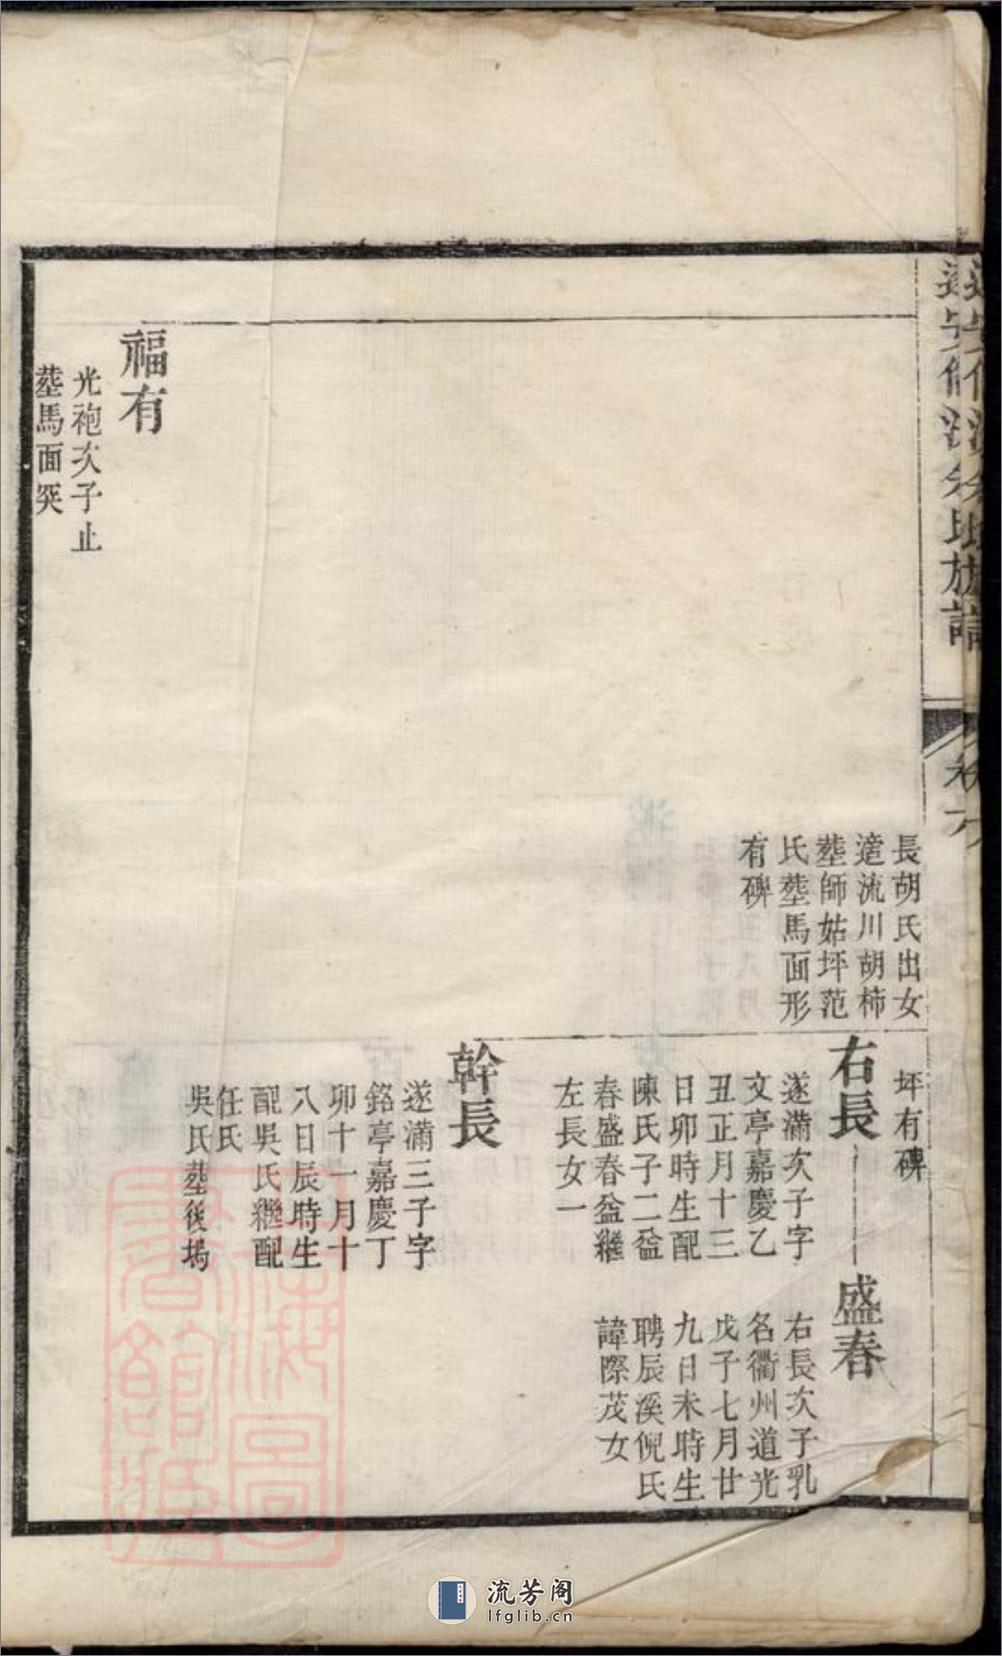 長胡氏出女
適流川胡柿
塟師姑坪范
氏塟馬面形
有碑
坪有碑
右長
遂滿次子字
文亭嘉慶乙
丑正月十三
日卯時生配
陳氏子二益
春盛春益繼
左長女一
盛春
右長次子乳
名衢州道光
戊子七月廿
九日未時生
聘辰溪倪氏
諱際茂女
幹長
遂滿三子字
銘亭嘉慶丁
卯十一月十
八日辰時生
配吳氏繼配
任氏
吳氏塟後塢
福有
光袍次子止
塟馬面突
流芳阁
lfglib.cn